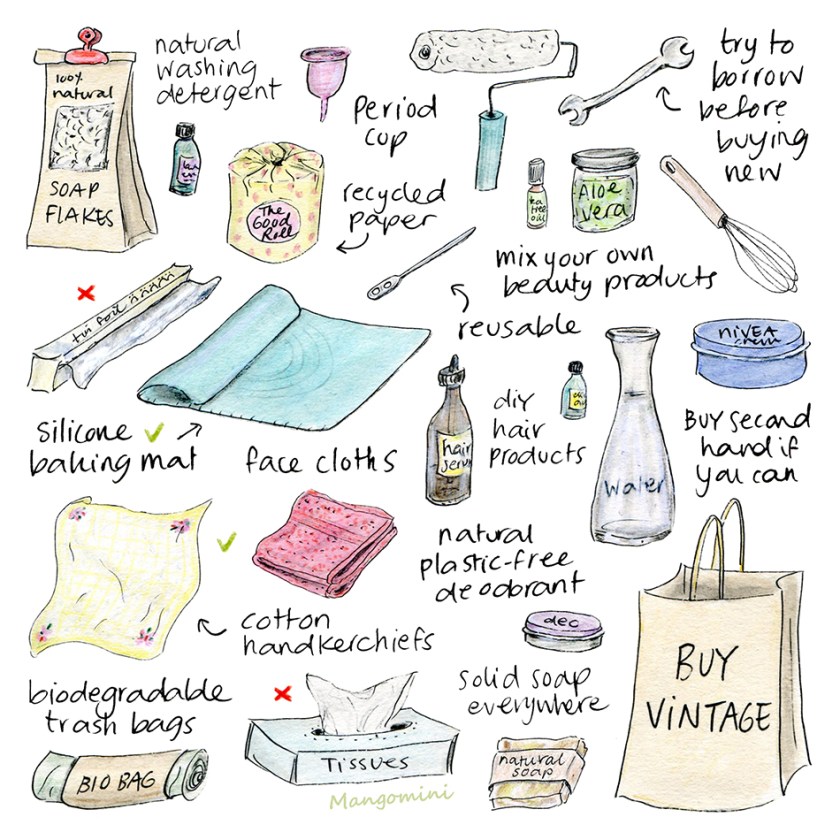 100%
natural
SOAP
FLAKES
natural
washing
detergent
Period
cup
try to
borrow
before
buying
new
The
Good
Roll
recycled
paper
tea
tree
oil
Aloe
vera
mix your own
beauty products
reusable
tin foil
silicone
baking mat
face cloths
hair
serum
diy
hair
products
water
NIVEA
creme
BUY second
hand if
you can
natural
plastic-free
deodorant
deo
cotton
handkerchiefs
biodegradable
trash bags
BIO BAG
Tissues
Mangomini
solid soap
everywhere
natural
soap
BUY
ViNTAGE